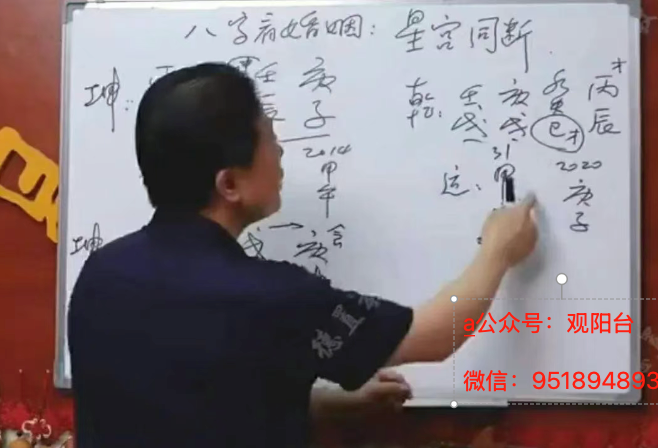 八字看婚姻：星宫同断.
坤： 壬 庚
辰 子
2014
甲
午
坤 戌 → 庚 会
才
乾： 壬 庚 癸 丙
戌 戌 巳才 辰
31 2020
运： 甲 庚
子
a公众号：观阳台
微信：951894893